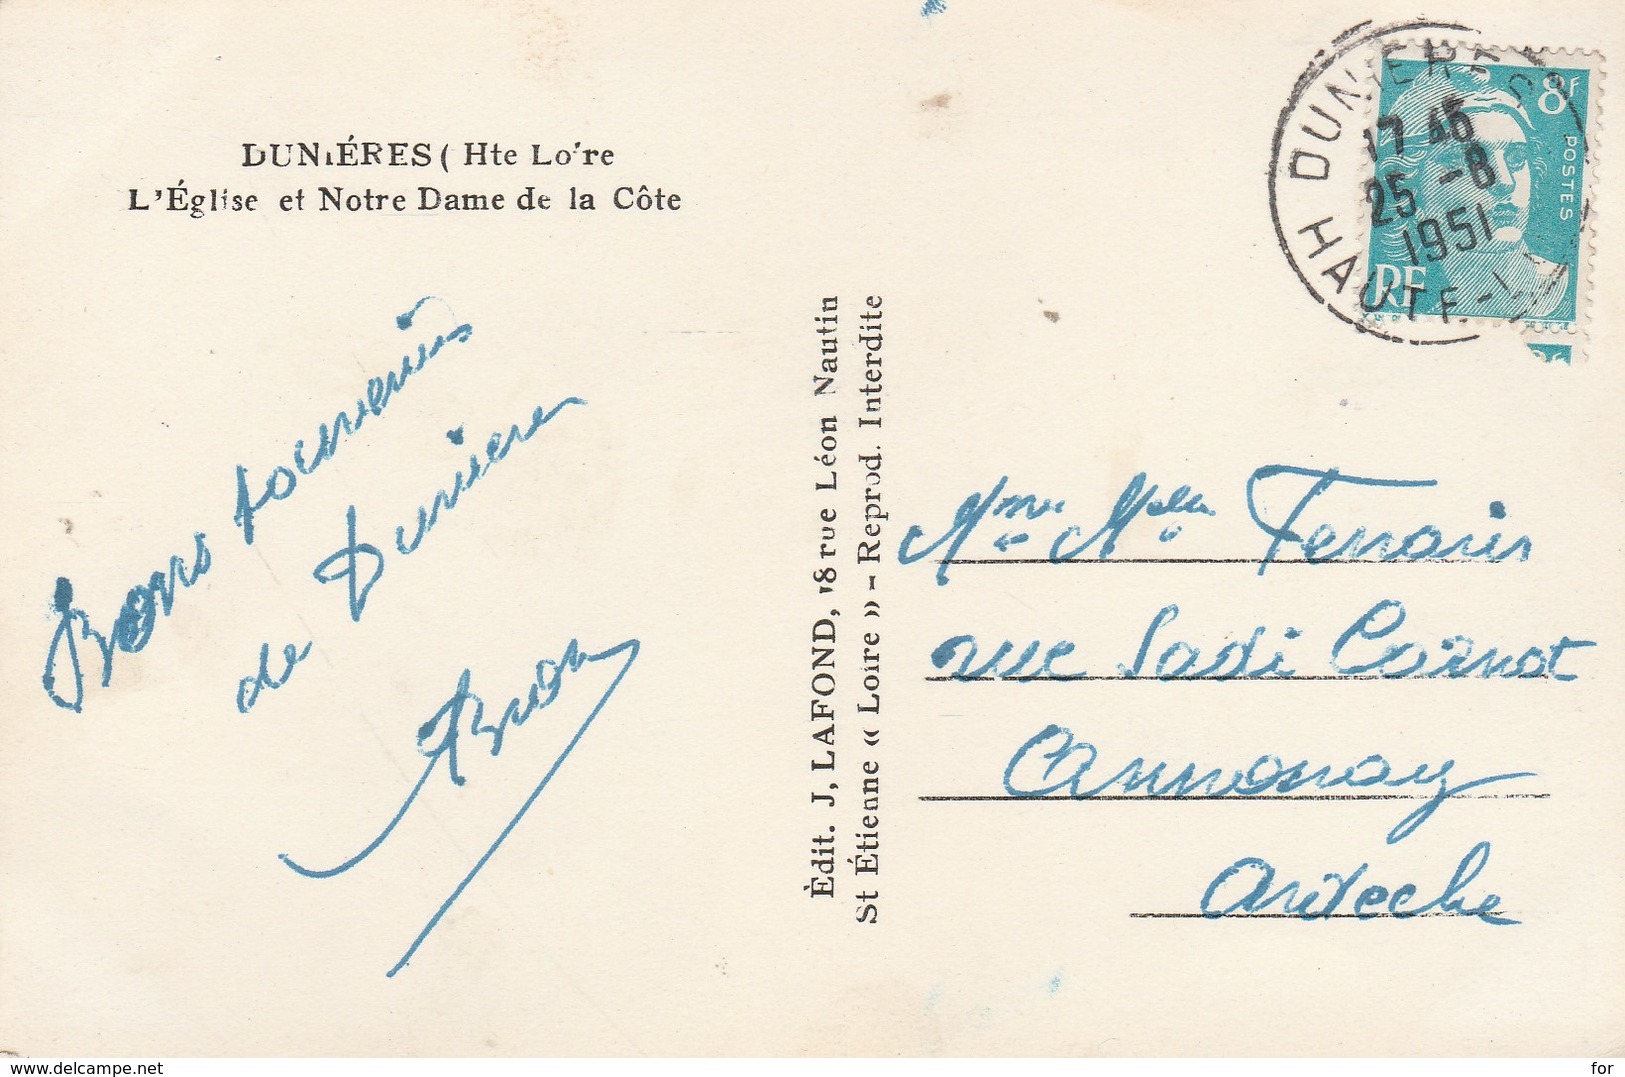 DUNIÉRES ( Hte Lo're
L'Église et Notre Dame de la Côte
Bons souvenirs
de Dunières
Édit. J, LAFOND, 18 rue Léon Nautin
St Étienne « Loire » - Reprod. Interdite
8F
POSTES
RF
DUNIERES
17 45
25 -8
1951
HAUTE-L
Mme Mlle
rue Sadi Carnot
Annonay
Ardeche
delcampe.net
for